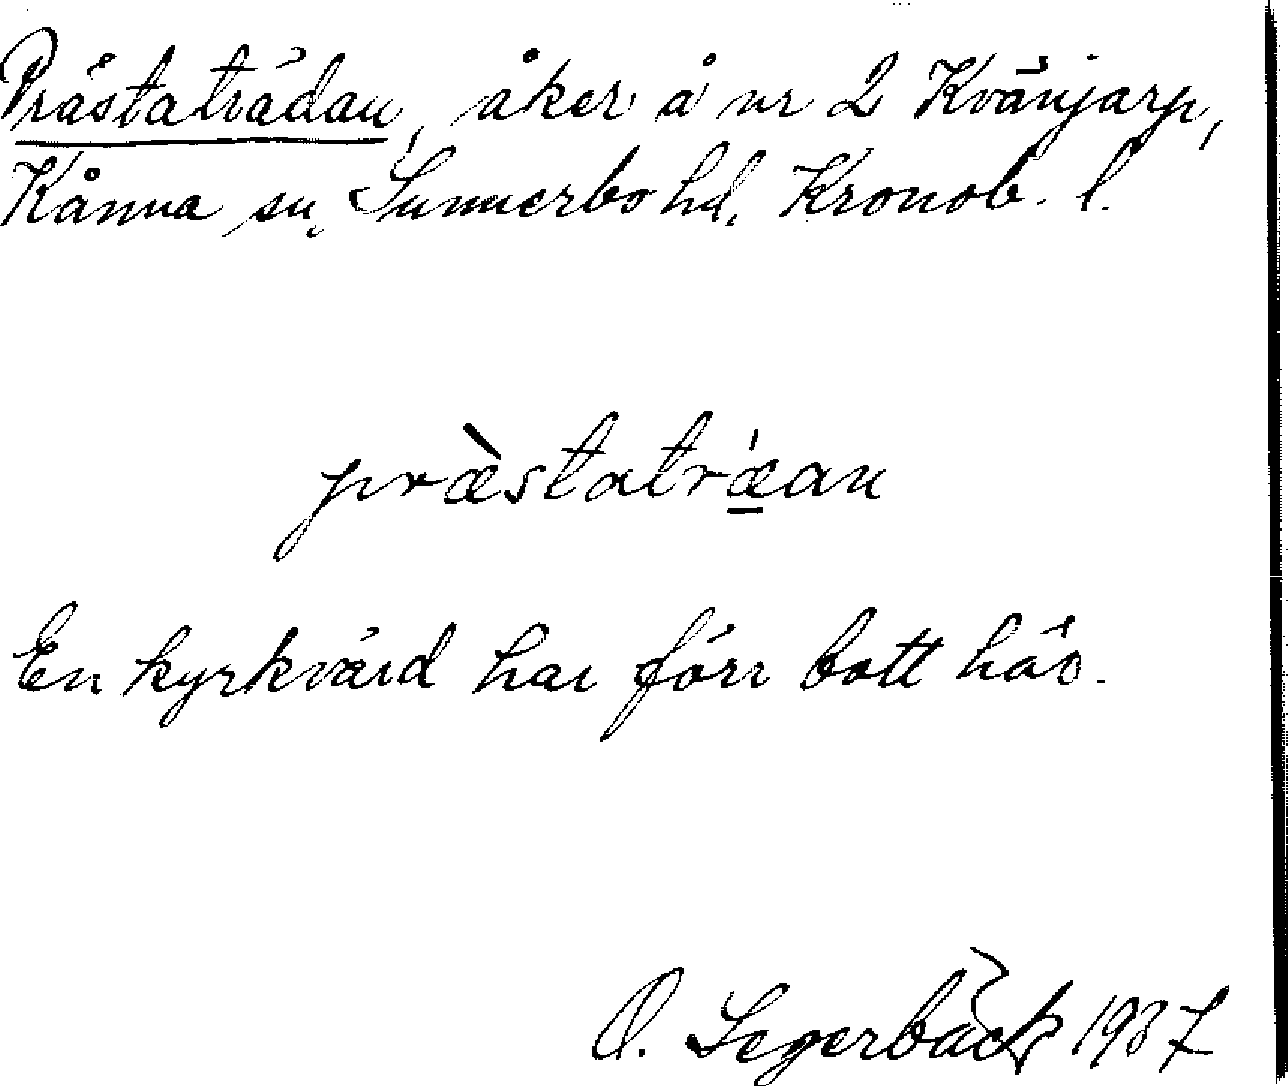 Prästaträdan, åker å nr 2 Kvänjarp,
Kånna sn, Sunnerbo hd, Kronob. l.
præ̀statrǽ̱an
En kyrkvärd har förr bott här.
O. Segerbäck 1937